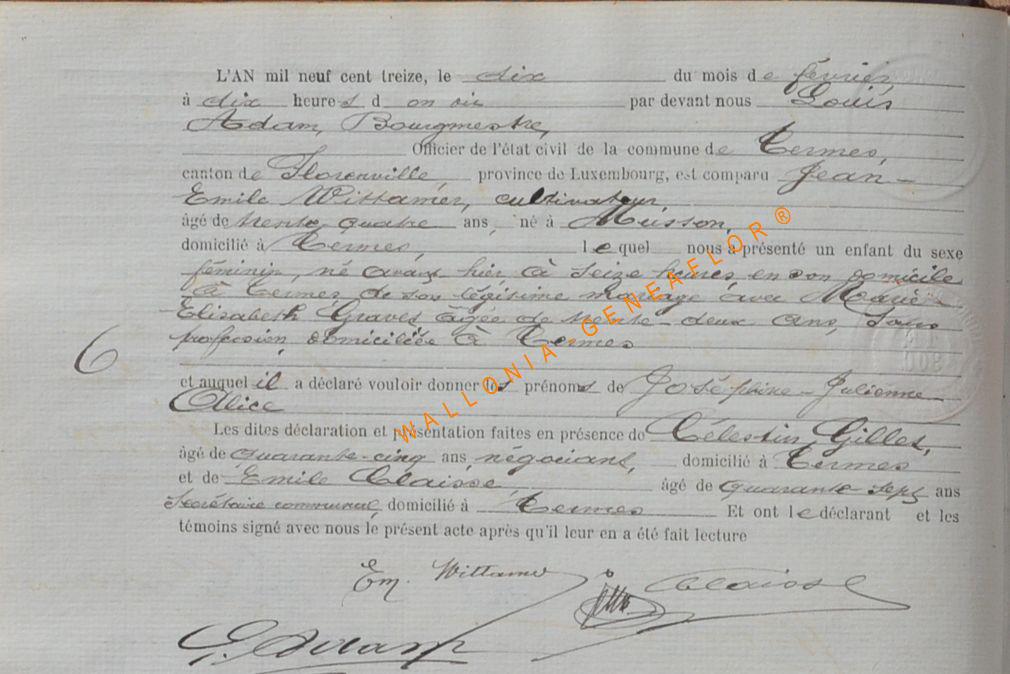 L'AN mil neuf cent treize, le dix du mois de février
à dix heures d on vie par devant nous Louis
Adam, Bourgmestre,
Officier de l'état civil de la commune de Termes,
canton de Florenville, province de Luxembourg, est comparu Jean-
Emile Wittamer, cultivateur,
âgé de trente quatre ans, né à Musson,
domicilié à Termes, lequel nous a présenté un enfant du sexe
féminin, né avant hier, à seize heures, en son domicile
à Termes de son légitime mariage avec Marie-
Elisabeth Graves, agée de trente-deux ans, sans
profession, domiciliée à Termes
6
et auquel il a déclaré vouloir donner les prénoms de Joséphine-Julienne
Alice
Les dites déclaration et présentation faites en présence de Célestin Gilles,
âgé de quarante-cinq ans négociant, domicilié à Termes
et de Emile Claisse, âgé de quarante-sept ans
Secrétaire communal, domicilié à Termes Et ont le déclarant et les
témoins signé avec nous le présent acte après qu'il leur en a été fait lecture
Em. Wittamer Claisse
Adam
WALLONIA - GENEAFLOR ®